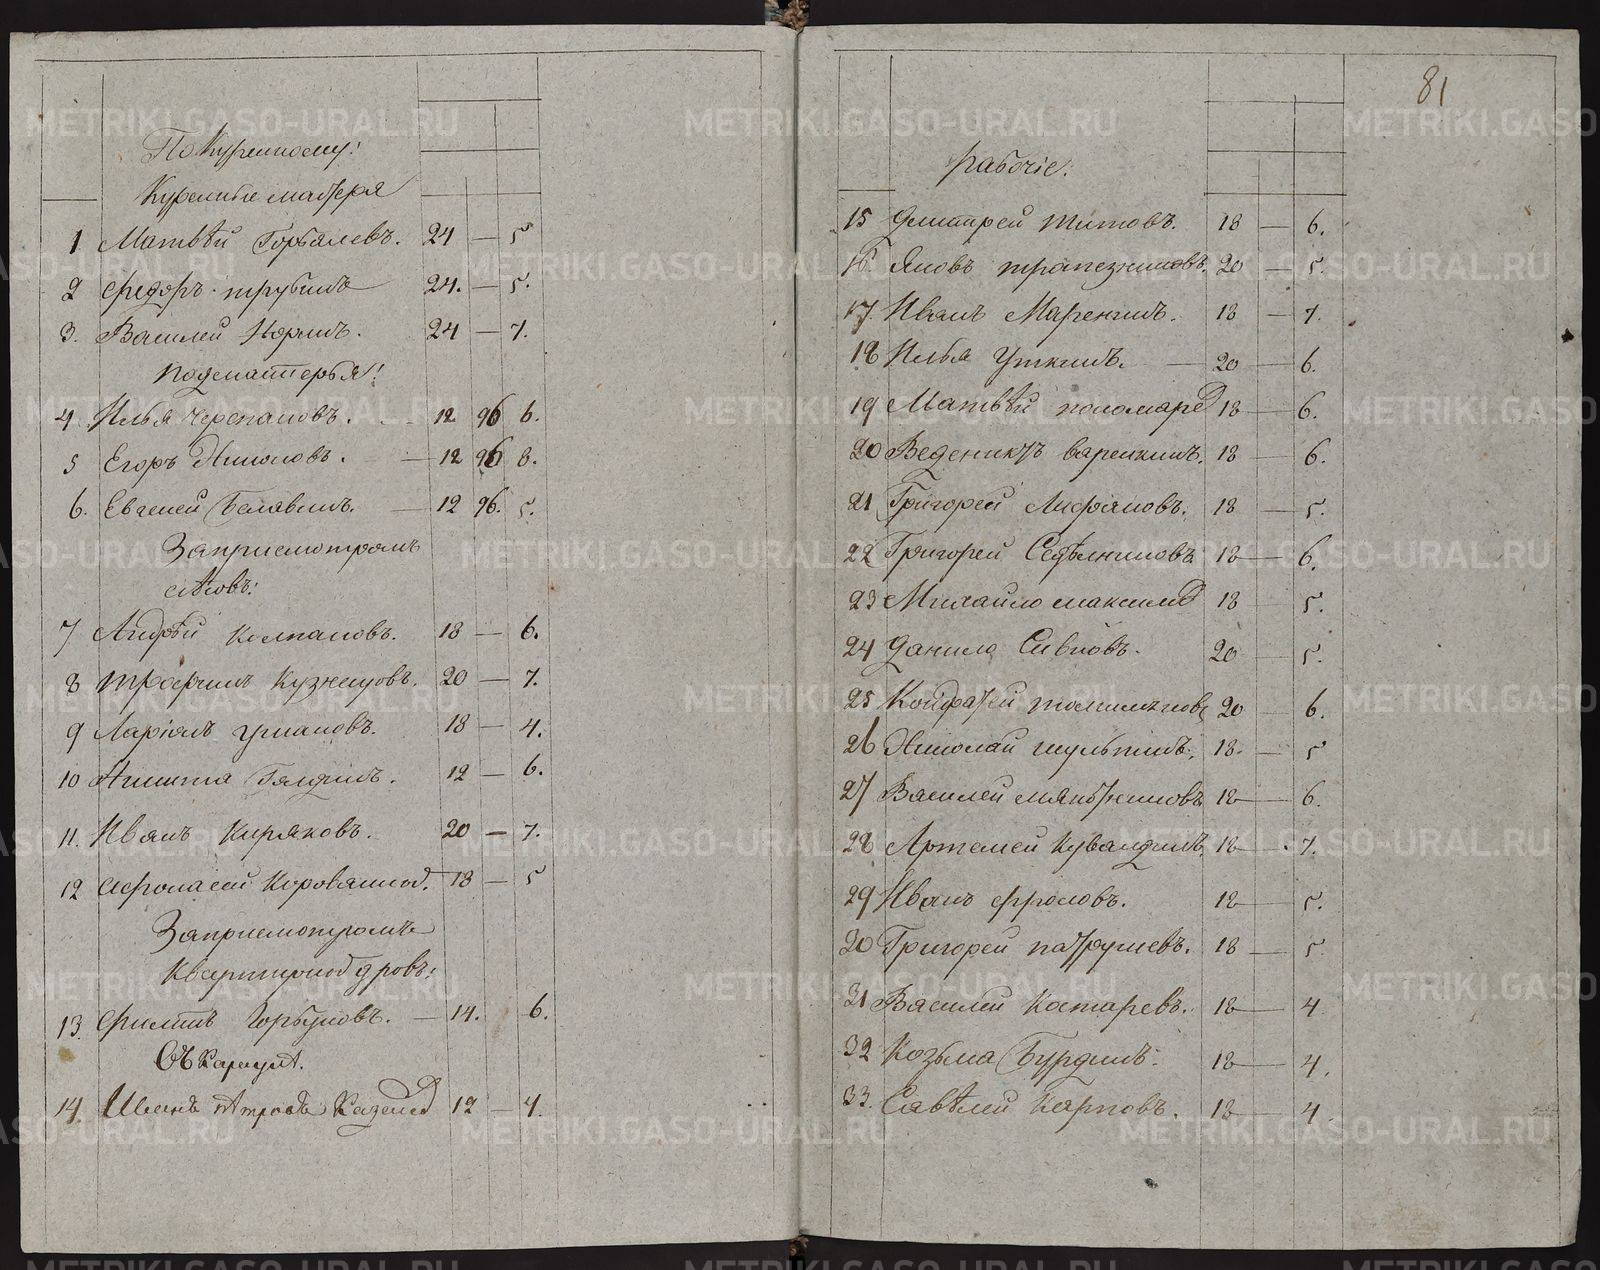 По Куренному:
Куренные мастера
1 Матвѣй Горбалевъ. 24 — 5
2 Федоръ трубинъ 24. — 5.
3. Василей Норинъ. 24 — 7.
подмастерья:
4 Илья черепановъ. 12 96 6.
5 Егоръ Никоновъ. — 12 96 8.
6. Евгеней Белавинъ. — 12 96. 5.
За присмотромъ
сѣновъ:
7 Андрѣй Колпаковъ. 18 — 6.
8 трофимъ Кузнецовъ. 20 — 7.
9 Ларіонъ 18 — 4.
10 Никита 12 — 6.
11. Иванъ Киряковъ. 20 — 7.
12 Афонасей 18 — 5
За присмотромъ
Квартирной дровъ:
13. Филипъ Горбуновъ. — 14. 6.
14. Иванъ Петровъ 12 — 4.
81
рабочіе:
15 Дмитрей титовъ. 18 — 6.
16. Яковъ трапезниковъ. 20 — 5.
17 Иванъ Маренинъ. 18 — 7.
18 Илья Уткинъ. — 20 — 6.
19 Матвѣй пономаре 18 — 6.
20 Веденихтъ варенкинъ. 18 — 6.
21 Григорей Лифановъ. 18 — 5.
22 Григорей Седѣлниковъ 18 — 6.
23 Михайло максимо 18 — 5.
24 Данило Сивковъ. 20 — 5.
25 томиловъ 20 — 6.
26 Николай шультинъ. 18. — 5
27 Василей 18 — 6.
28 Артемей Кувалдинъ. 18 — 7.
29 Иванъ фроловъ. 18 — 5.
30 Григорей патрушевъ. 18 — 5
31 Василей Костаревъ. 18 — 4
32 Козьма Бурдинъ. 18 — 4.
33. Савѣлей Карповъ. 18 — 4
METRIKI.GASO-URAL.RU